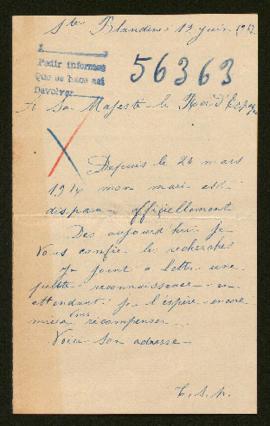 Stes Blandine 13 juin
1
Pedir informes
Que se hace así
Devolver
56363
A Sa Majesté le Roi d'Espagne
Depuis le 24 mars
1914 mon mari est
disparu officiellement
Des aujourd'hui je
vous confie le recherches
Je joint a lettre une
petite reconnaissance en
attendant je l'espère encore
mieux vous récompenser
Voici son adresse
T. S. p.